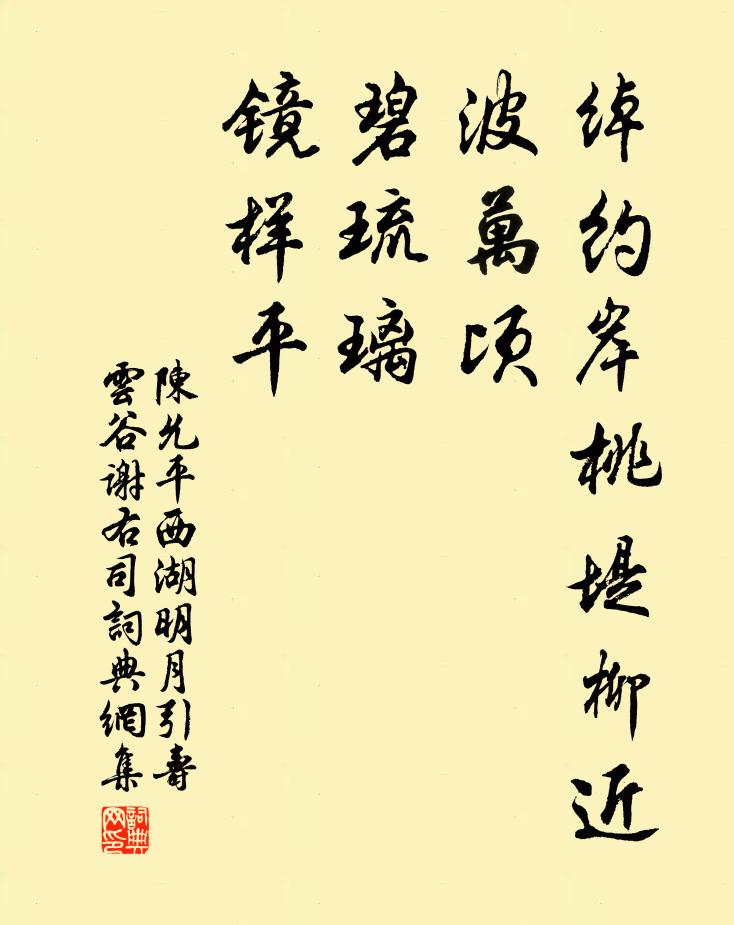 绰约岸桃堤柳近
波萬頃
碧琉璃
镜样平
陳允平西湖明月引壽
雲谷谢右司詞典網集
詞典
网印